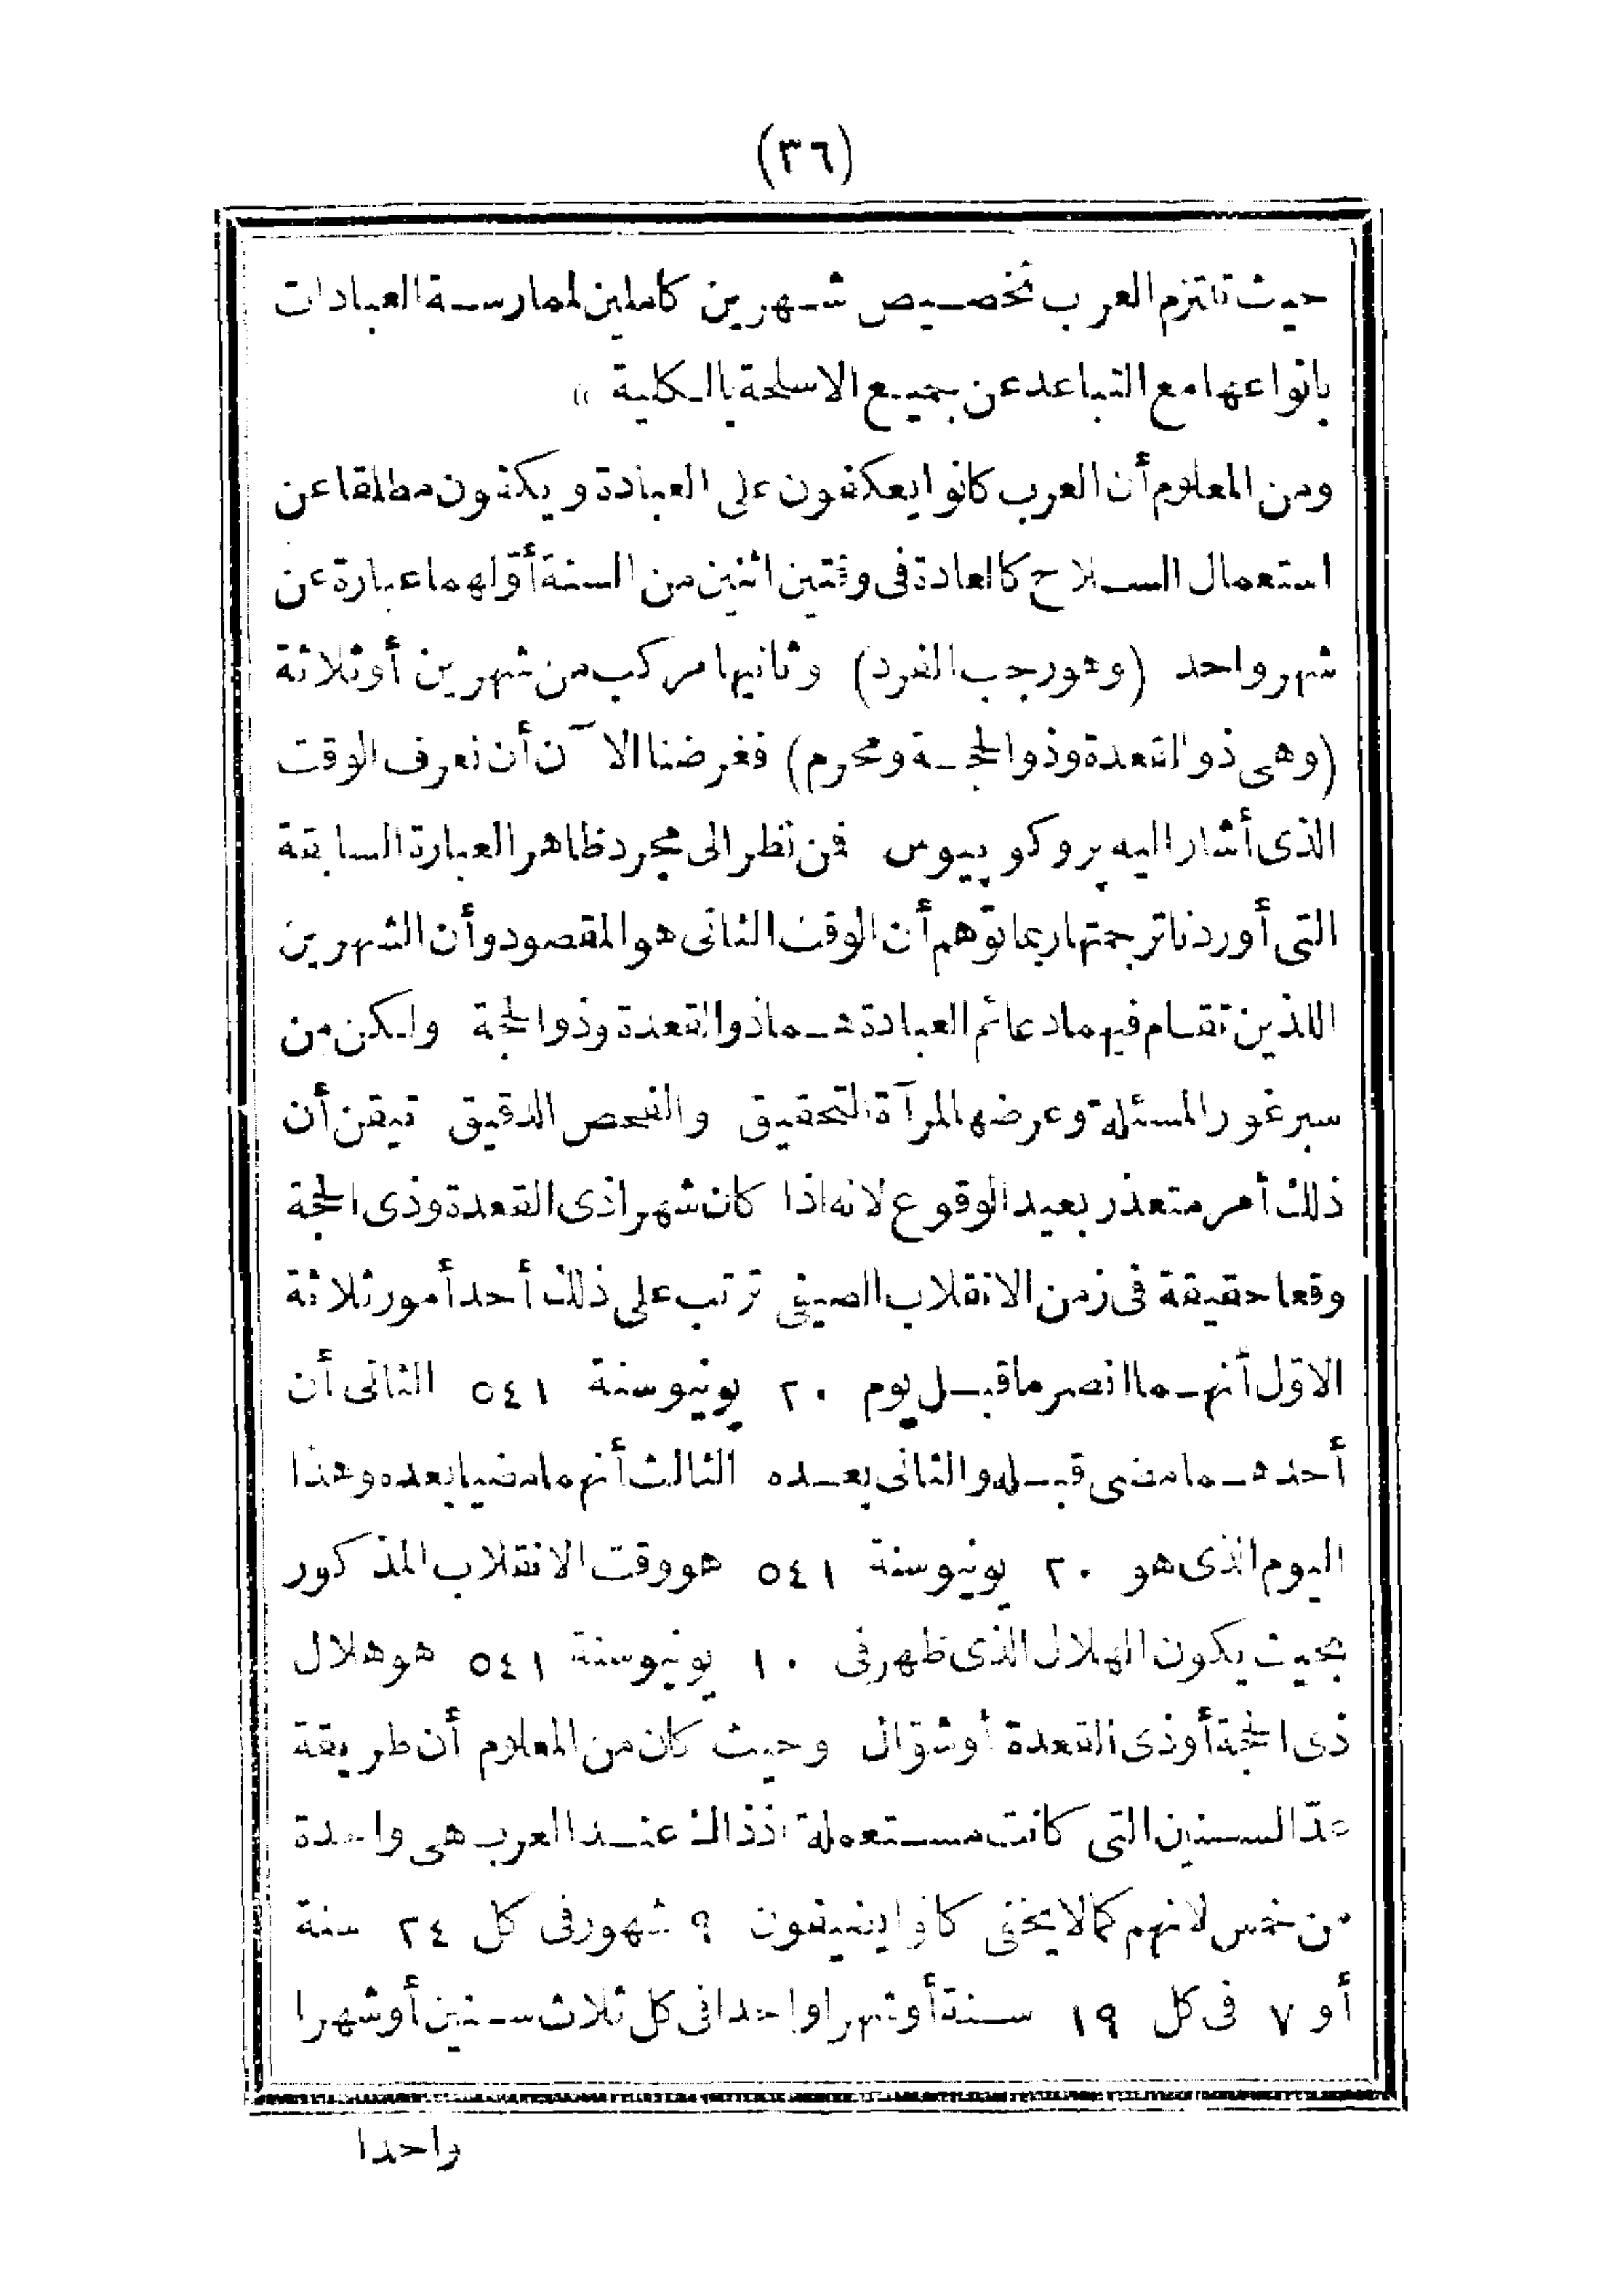 (٣٦)
حيث تلتزم العرب تخصيص شهرين كاملين لممارسة العبادات
بانواعها مع التباعد عن جميع الاسلحة بالكلية »
ومن المعلوم أن العرب كانوا يعكفون على العبادة ويكفون مطلقا عن
استعمال السلاح كالعادة فى وقتين اثنين من السنة أوّلهما عبارة عن
شهر واحد (وهو رجب الفرد) وثانيها مركب من شهرين أو ثلاثة
(وهى ذو القعدة وذو الحجة ومحرم) فغرضنا الآن أن نعرف الوقت
الذى أشار اليه پروكوپيوس فمن نظر الى مجرد ظاهر العبارة السابقة
التى أوردنا ترجمتها ربما توّهم أن الوقت الثانى هو المقصود وأن الشهرين
اللذين تقام فيهما دعائم العبادة هما ذو القعدة وذو الحجة ولكن من
سبر غور المسئلة وعرضها لمرآة التحقيق والفحص الدقيق تيقن أن
ذلك أمر متعذر بعيد الوقوع لانه اذا كان شهرا ذى القعدة وذى الحجة
وقعا حقيقة فى زمن الانقلاب الصيفى ترتب على ذلك أحد أمور ثلاثة
الاوّل أنهما انصرما قبل يوم ٢٠ يونيو سنة ٥٤١ الثانى أن
أحدهما مضى قبله والثانى بعده الثالث أنهما مضيا بعده وهذا
اليوم الذى هو ٢٠ يونيو سنة ٥٤١ هو وقت الانقلاب المذكور
بحيث يكون الهلال الذى ظهر فى ١٠ يونيو سنة ٥٤١ هو هلال
ذى الحجة أو ذى القعدة أو شوّال وحيث كان من المعلوم أن طريقة
عدّ السنين التى كانت مستعملة اذ ذاك عند العرب هى واحدة
من خمس لانهم كما لا يخفى كانوا يضيفون ٩ شهور فى كل ٢٤ سنة
أو ٧ فى كل ١٩ سنة أو شهرا واحدا فى كل ثلاث سنين أو شهرا
واحدا